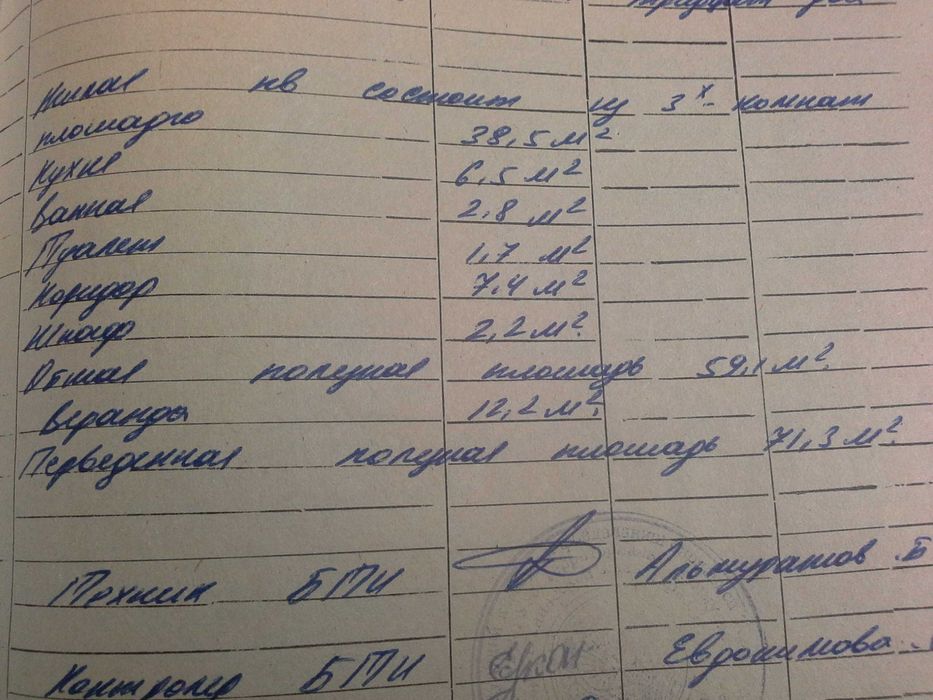 тридцать два
Жилая кв состоит из 3х- комнат
площадью 38,5 м²
Кухня 6,5 м²
Ванная 2,8 м²
Туалет 1,7 м²
Коридор 7,4 м²
Шкаф 2,2 м²
Общая полезная площадь 59,1 м²
Веранда 12,2 м²
Переведенная полезная площадь 71,3 м²
Техник БТИ Альмуратов Б
Контролер БТИ Евдокимова